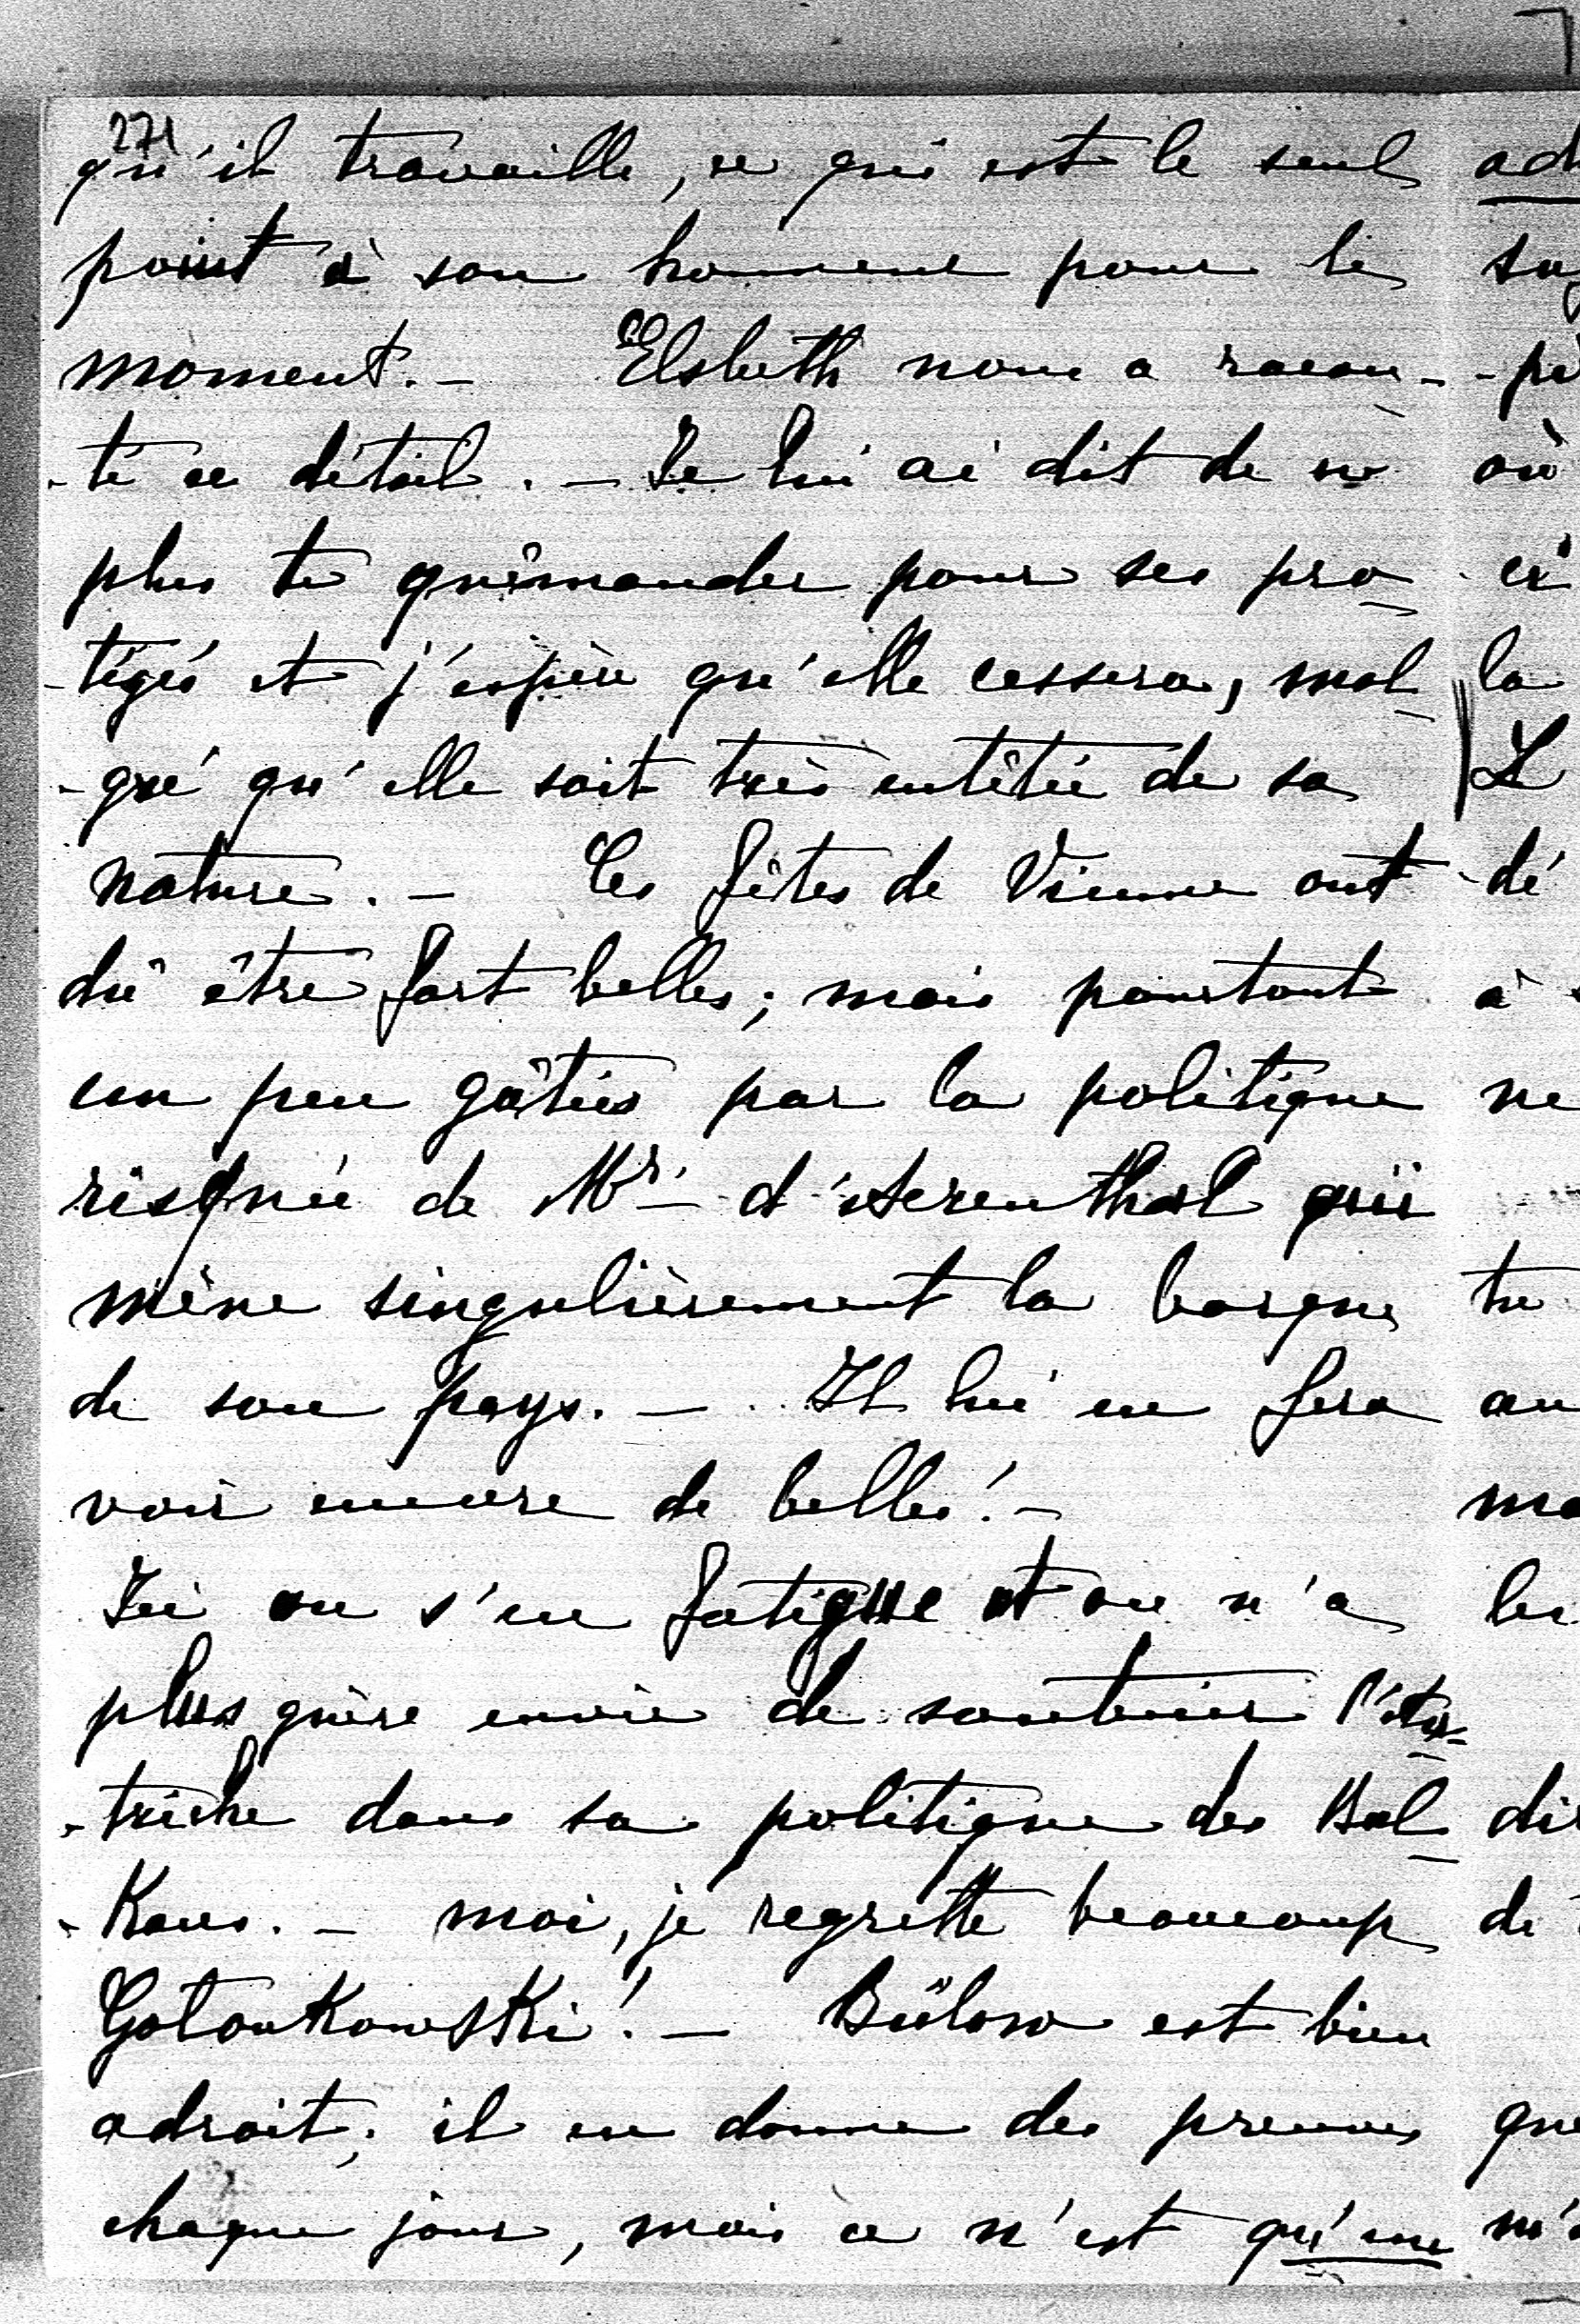 271
qu'il travaille, ce qui est le seul
point à son honneur pour le
moment. – Elsbeth nous a racon-
-té ce détail. – Je lui ai dit de ne
plus te quémander pour ses pro-
-tégés et j'espère qu'elle cessera, mal-
-gré qu'elle soit très entêtée de sa
nature. – Les fêtes de Vienne ont
dû être fort belles; mais pourtant
un peu gâtées par la politique
risquée de Mr. d'Aerenthal qui
mène singulièrement la barque
de son pays. – Il lui en fera
voir encore de belles! –
Ici on s'en fatigue et on n'a
plus guère envie de soutenir l'Au-
-triche dans sa politique des Bal-
-Kans. – moi, je regrette beaucoup
GolouKowsKi! – Bülow est bien
adroit; il en donne des preuves
chaque jour, mais ce n'est qu'une